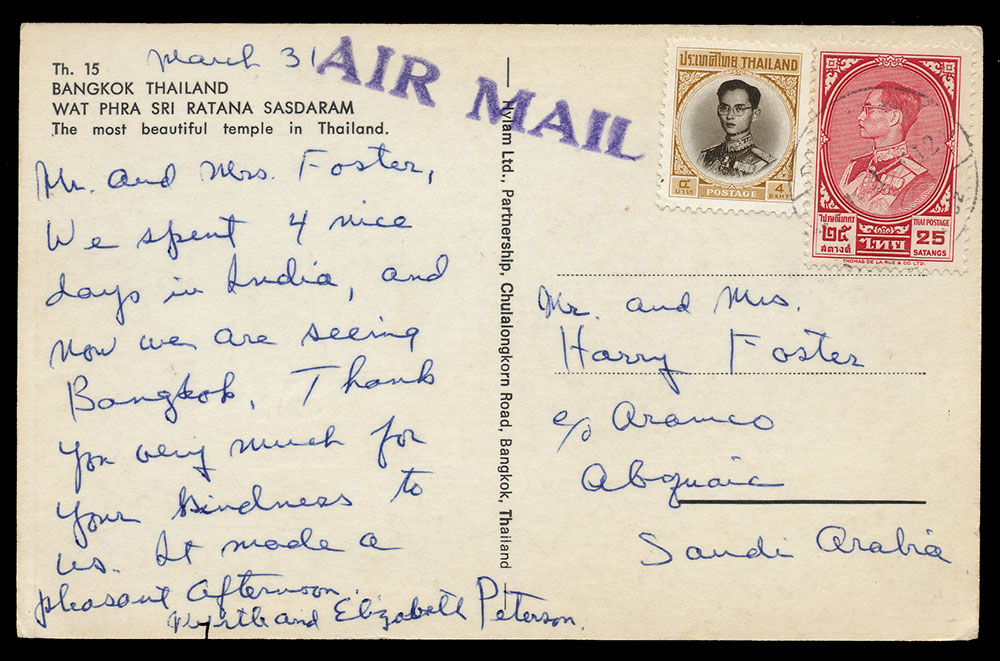 March 31
Th. 15
BANGKOK THAILAND
WAT PHRA SRI RATANA SASDARAM
The most beautiful temple in Thailand.
AIR MAIL
Mr. and Mrs. Foster,
We spent 4 nice
days in India, and
now we are seeing
Bangkok. Thank
you very much for
your kindness to
us. It made a
pleasant afternoon.
Myrtle and Elizabeth Peterson.
Hylam Ltd., Partnership, Chulalongkorn Road, Bangkok, Thailand
ประเทศไทย THAILAND
๔ บาท
POSTAGE
4 BAHT
ไปรษณีย์อากร
THAI POSTAGE
๒๕
สตางค์
ไทย
25
SATANGS
THOMAS DE LA RUE & CO. LTD.
Mr. and Mrs.
Harry Foster
c/o Aramco
Abquaic
Saudi Arabia